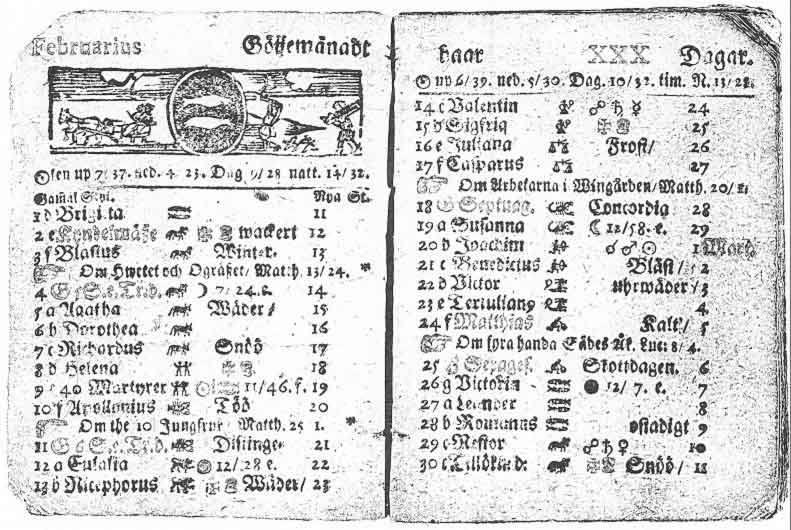 Februarius Göijemånadt
Solen up 7/37. ned. 4 23. Dag 9/28 natt. 14/32.
Gamal Styl. Nya St.
1 d Brigitta 11
2 e Kyndelmässe wackert 12
3 f Blasius Winter. 13
Om Hwetet och Ogräset/ Matth. 13/24.
4 G 7/24. 14
5 a Agatha Wäder/ 15
6 b Dorothea 16
7 c Richardus Snöö 17
8 d Helena 18
9 e 40 Martyrer 11/46. f. 19
10 f Apollonius Töö 20
Om the 10 Jungfrur Matth. 25 1.
11 G Distinge 21
12 a Eulalia 12/28 e. 22
13 b Nicephorus Wäder/ 23
haar XXX Dagar.
up 6/39. ned. 5/30. Dag. 10/32. tim. N. 13/28.
14 c Valentin ☍ ♄ ☿ 24
15 d Sigfrid 25
16 e Juliana Frost/ 26
17 f Casparus 27
Om Arbetarna i Wingården/ Matth. 20/1.
18 G Septuag. Concordia 28
19 a Susanna ☾ 12/58. e. 29
20 b Joachim ☌ ♂ ☉ 1 Mart.
21 c Benedictus Bläst/ 2
22 d Victor uhrwäder/ 3
23 e Tertulianq 4
24 f Matthias Kalt/ 5
Om fyra handa Sädes Åk. Luc: 8/4.
25 G Sexages. Skottdagen. 6
26 g Victorin 12/7. e. 7
27 a Leander 8
28 b Romanus ostadigt 9
29 c Nestor ☍ ♄ ♀ 10
30 c Snöö/ 11